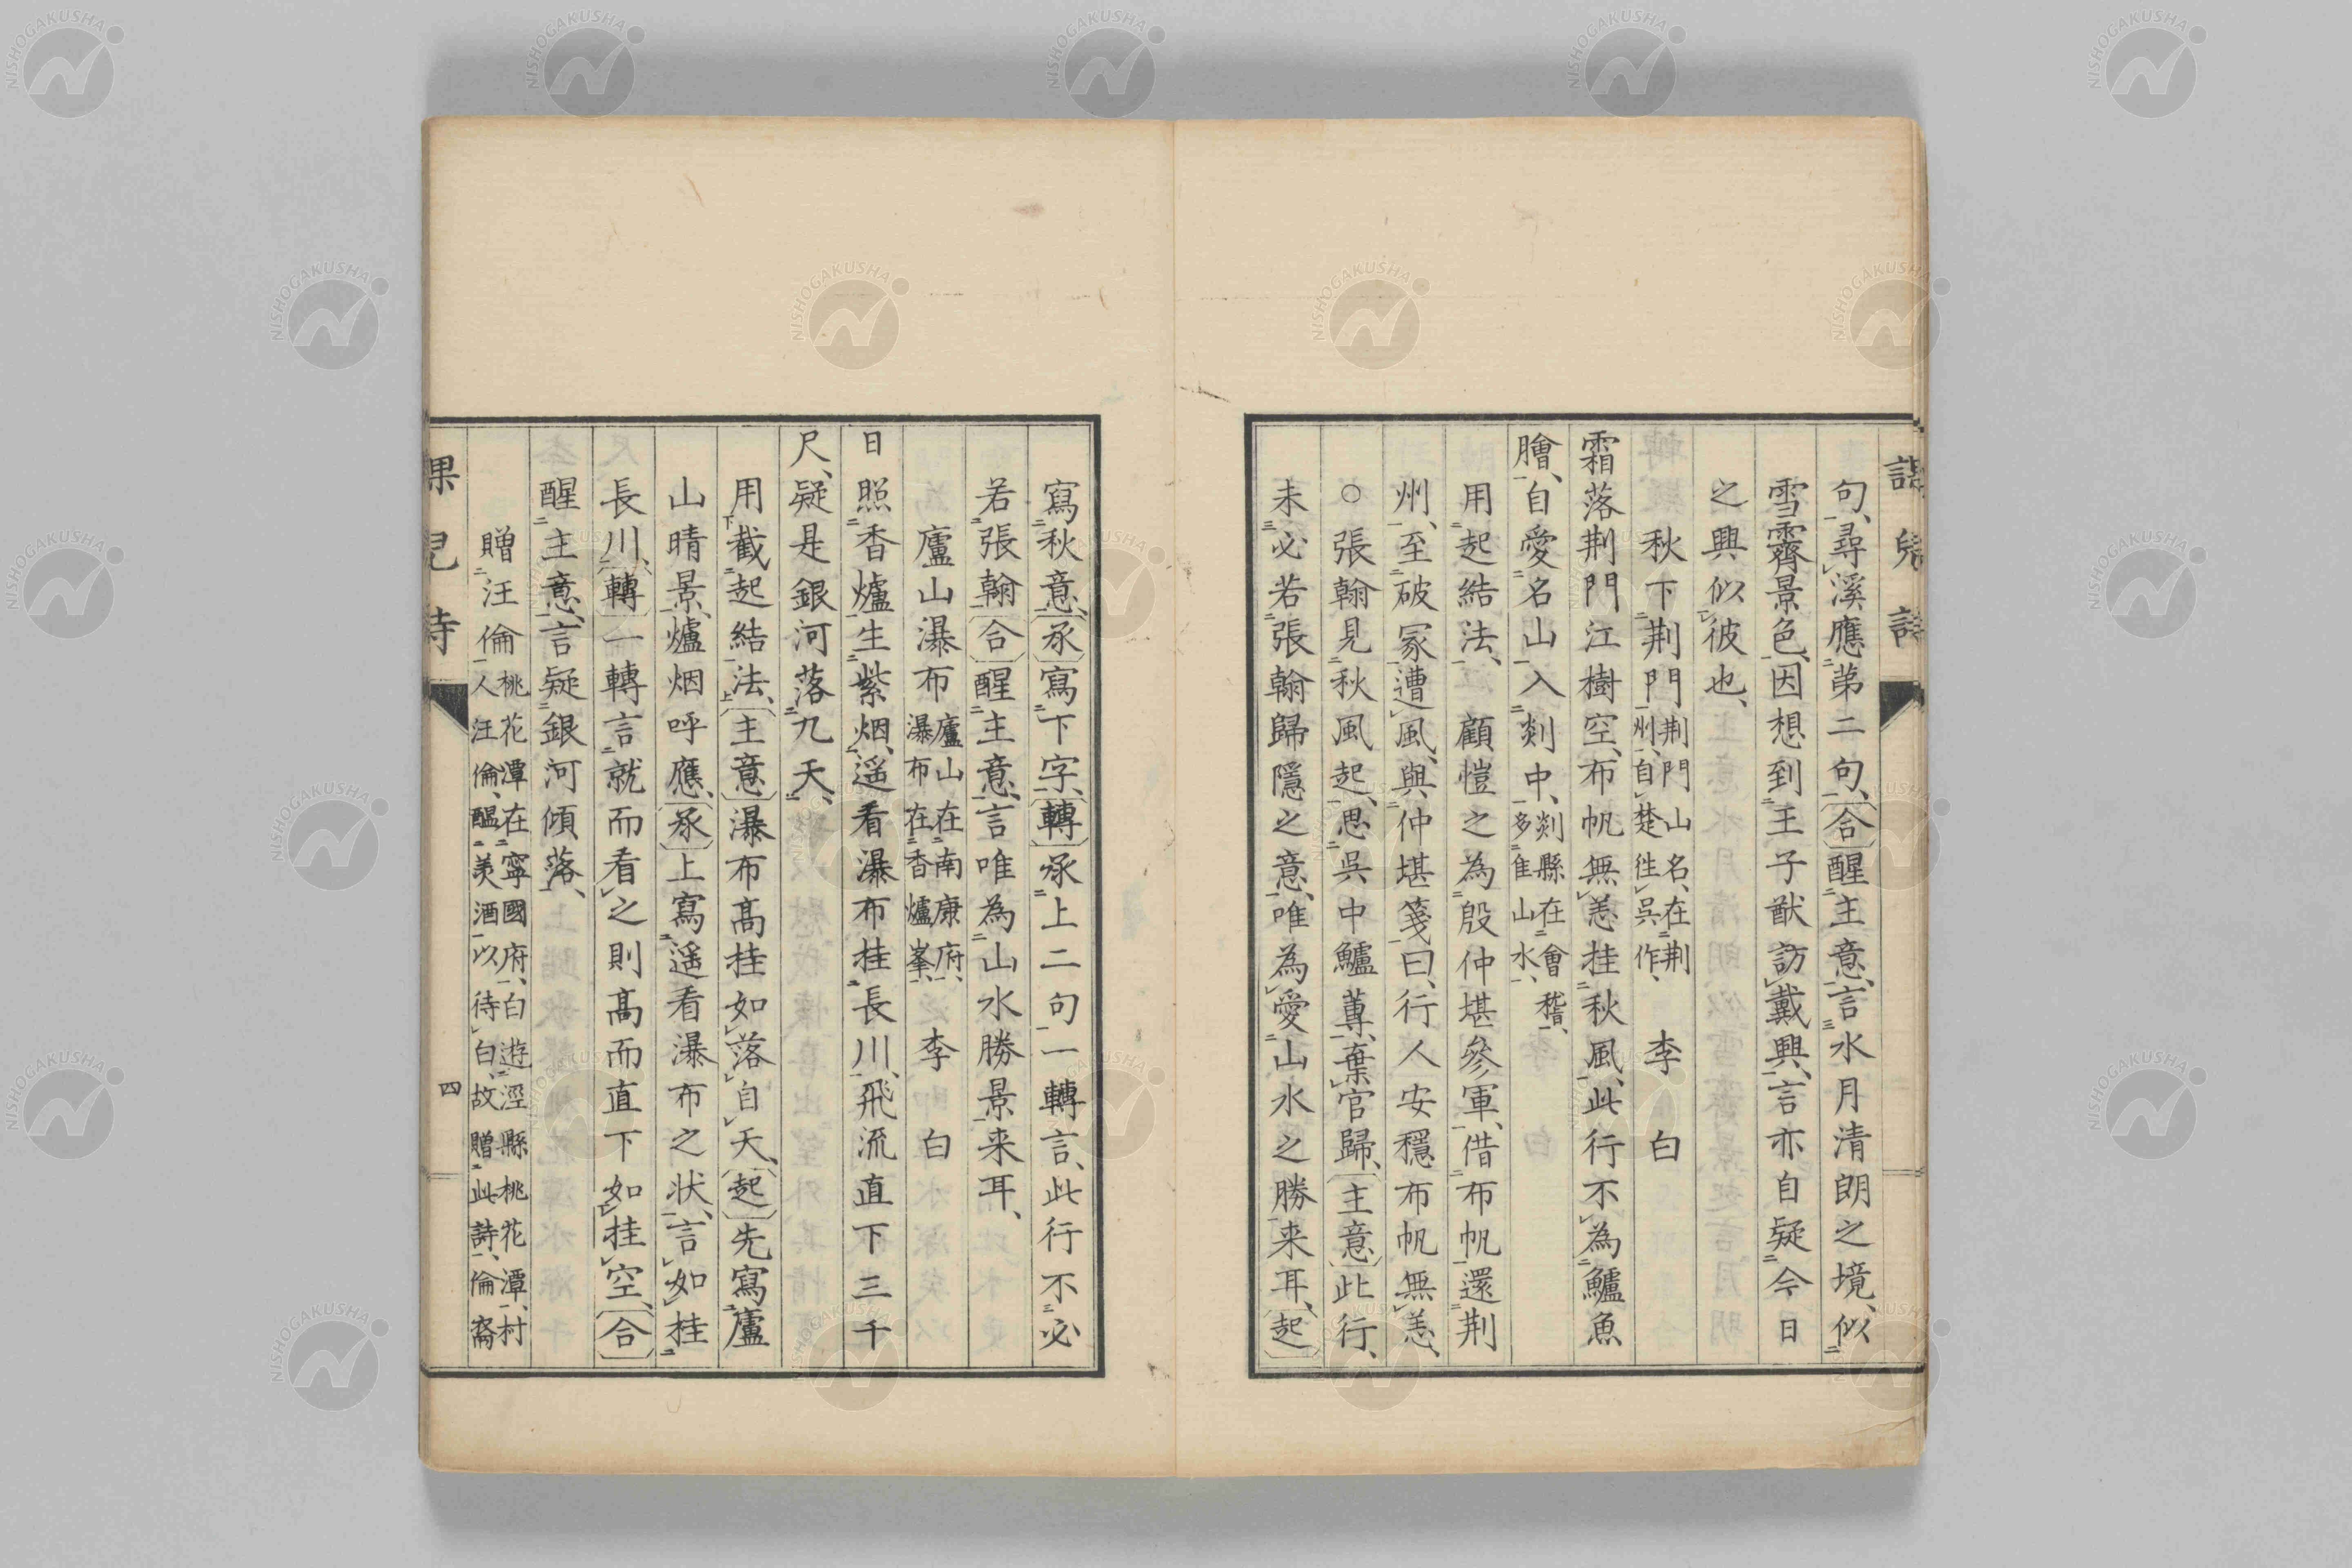 課兒詩
句、尋溪應第二句、合醒主意、言水月清朗之境、似
雪霽景色、因想到王子猷訪戴興、言亦自疑今日
之興似彼也、
秋下荆門荆門山名、在荆州、自楚徃吳作、 李白
霜落荆門江樹空、布帆無恙挂秋風、此行不為鱸魚
膾、自愛名山入剡中、剡縣在會稽、多佳山水、
用起結法、顧愷之為殷仲堪參軍、借布帆還荆
州、至破冢遭風、與仲堪箋曰、行人安穩布帆無恙、
○張翰見秋風起、思吳中鱸蓴、棄官歸、主意此行、
未必若張翰歸隱之意、唯為愛山水之勝来耳、起
寫秋意、承寫下字、轉承上二句一轉言、此行不必
若張翰合醒主意、言唯為山水勝景来耳、
廬山瀑布廬山在南康府、瀑布在香爐峯、 李白
日照香爐生紫烟、遥看瀑布挂長川、飛流直下三千
尺、疑是銀河落九天、
用截起結法、主意瀑布髙挂如落自天、起先寫廬
山晴景、爐烟呼應、承上寫遥看瀑布之状、言如挂
長川、轉一轉言就而看之則髙而直下如挂空、合
醒主意、言疑銀河傾落、
贈汪倫桃花潭在寧國府、白遊涇縣桃花潭、村人汪倫、醖美酒以待白、故贈此詩、倫裔
課兒詩
四